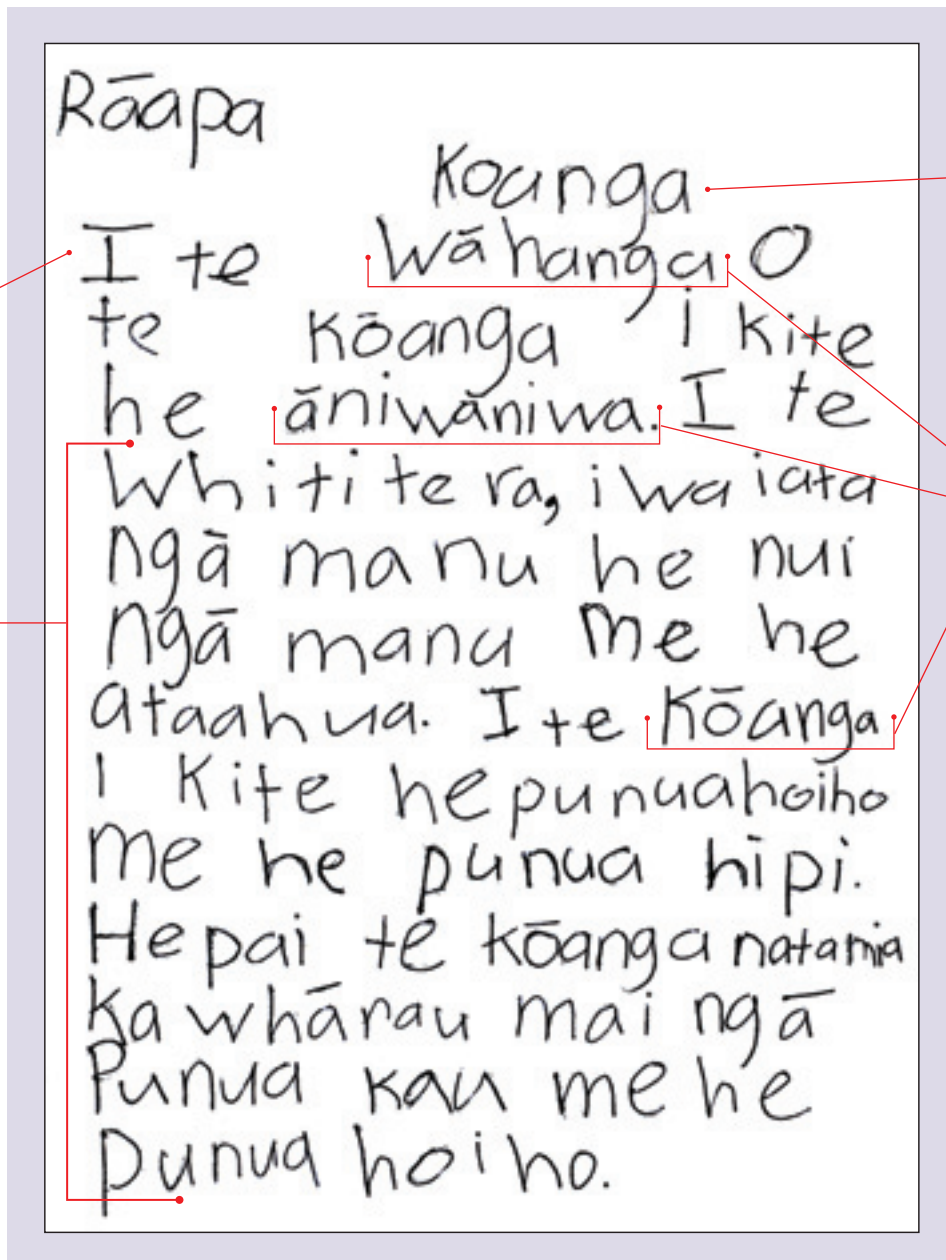 Rāapa
Koanga
I te wāhanga O
te kōanga i kite
he āniwāniwa. I te
whiti te ra, i wa iata
ngā manu he nui
ngā manu me he
ataahua. I te kōanga
I kite he punuahoiho
me he punua hipi.
He pai te kōanga natamia
ka whārau mai ngā
Punua kau me he
punua hoiho.